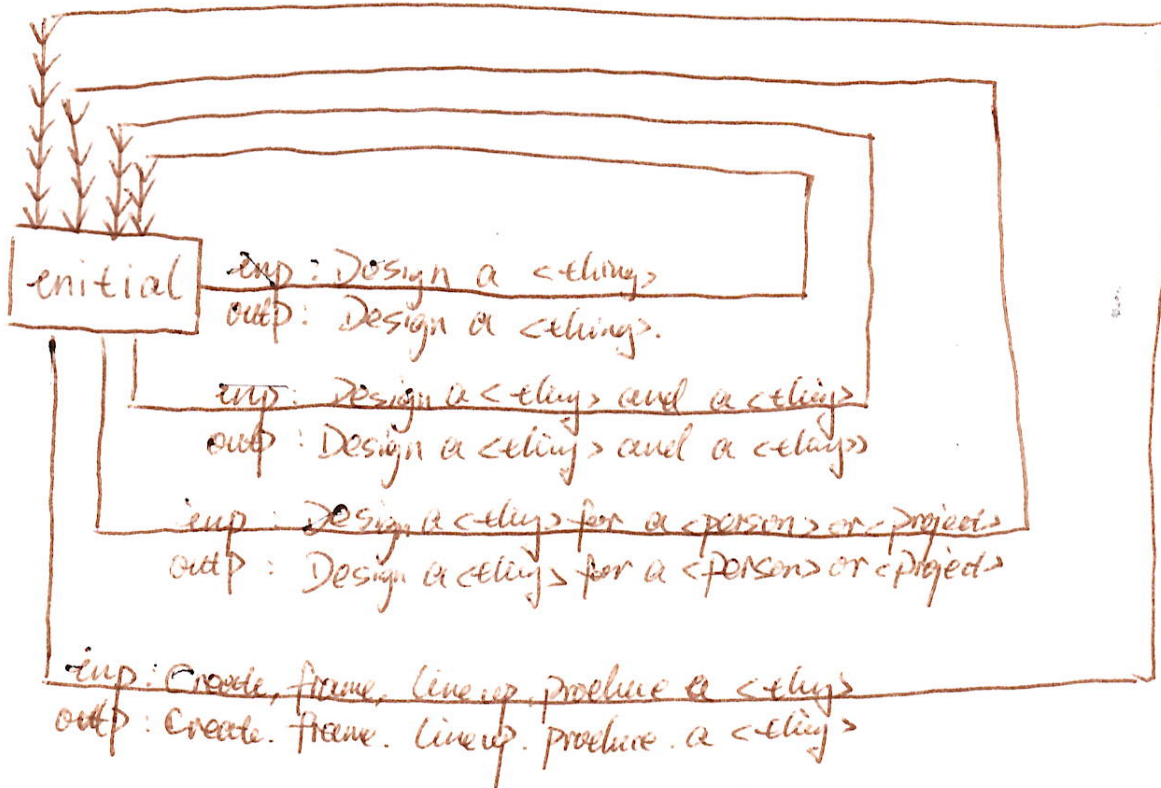 initial
inp: Design a <thing>
outp: Design a <thing>.
inp: Design a <thing> and a <thing>
outp: Design a <thing> and a <thing>
inp: Design a <thing> for a <person> or <project>
outp: Design a <thing> for a <person> or <project>
inp: Create, frame, line up, produce a <thing>
outp: Create. frame. line up. produce. a <thing>